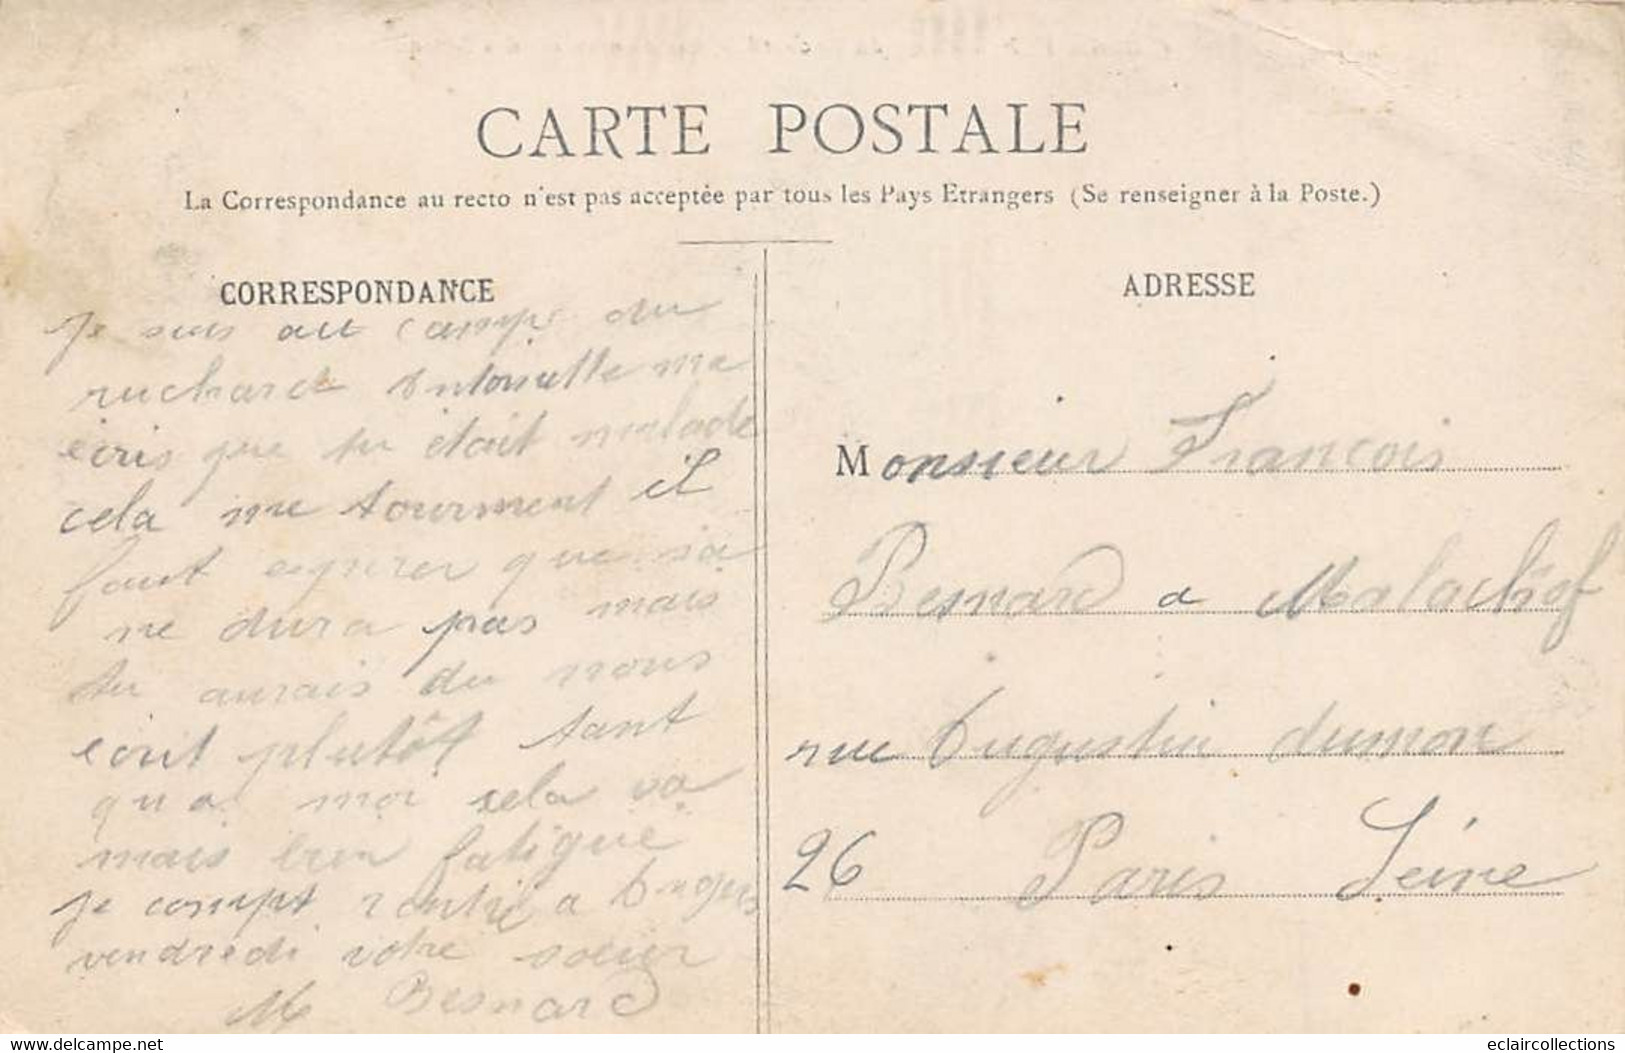 CARTE POSTALE
La Correspondance au recto n'est pas acceptée par tous les Pays Etrangers (Se renseigner à la Poste.)
CORRESPONDANCE
Je suis au camp du
ruchard Antoinette me
écris que tu était malade
cela me tourment il
faut espérer que sa
ne dura pas mais
tu aurais du nous
écrit plutôt tant
qu a moi sela va
mais bien fatigué
je compt rentré a Angers
vendredi votre soeur
M Besnard
ADRESSE
Monsieur François
Besnard a Malachöf
rue Augustin dumon
26 Paris Séine
delcampe.net
eclaircollections